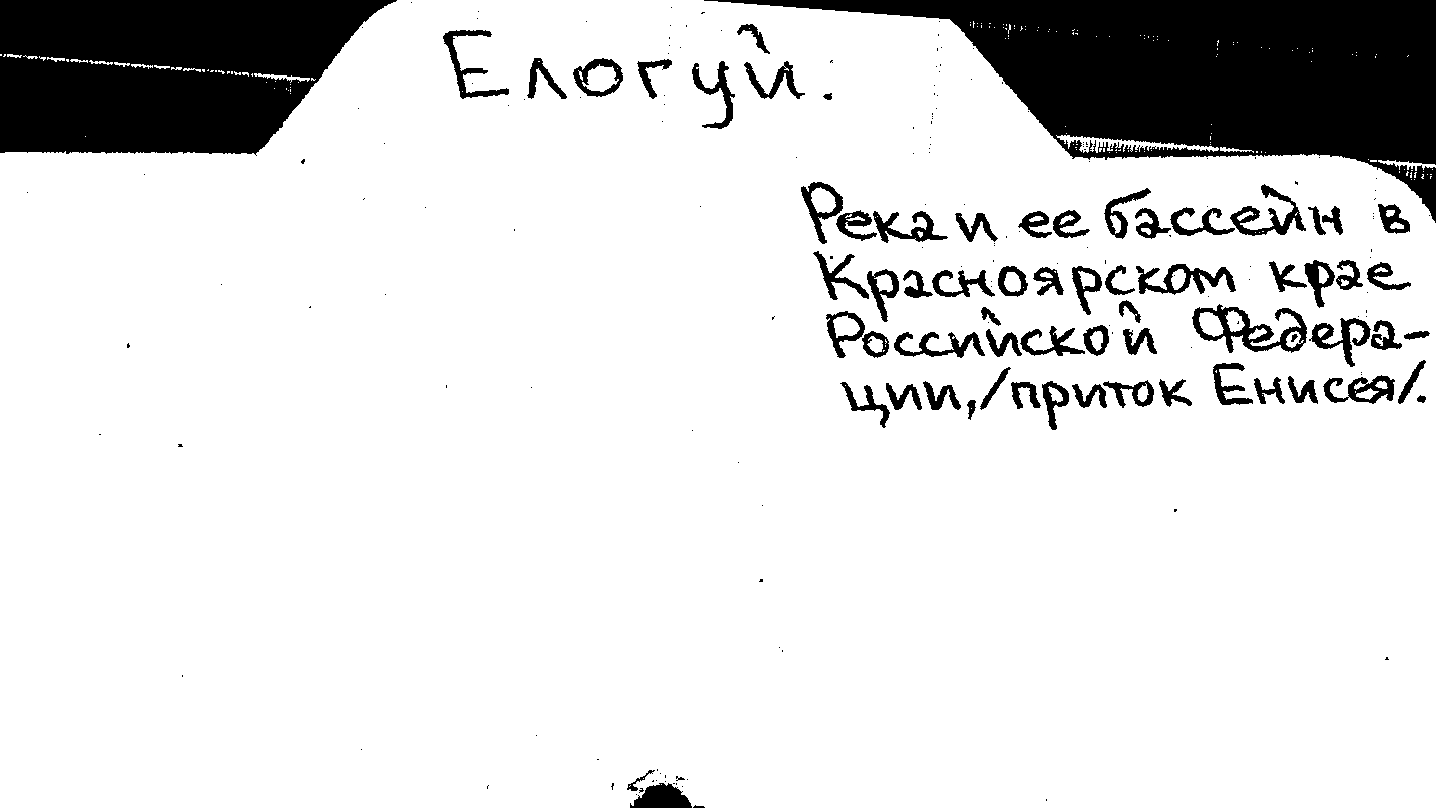 Елогуй.
Река и ее бассейн в
Красноярском крае
Российской Федера-
ции,/приток Енисея/.